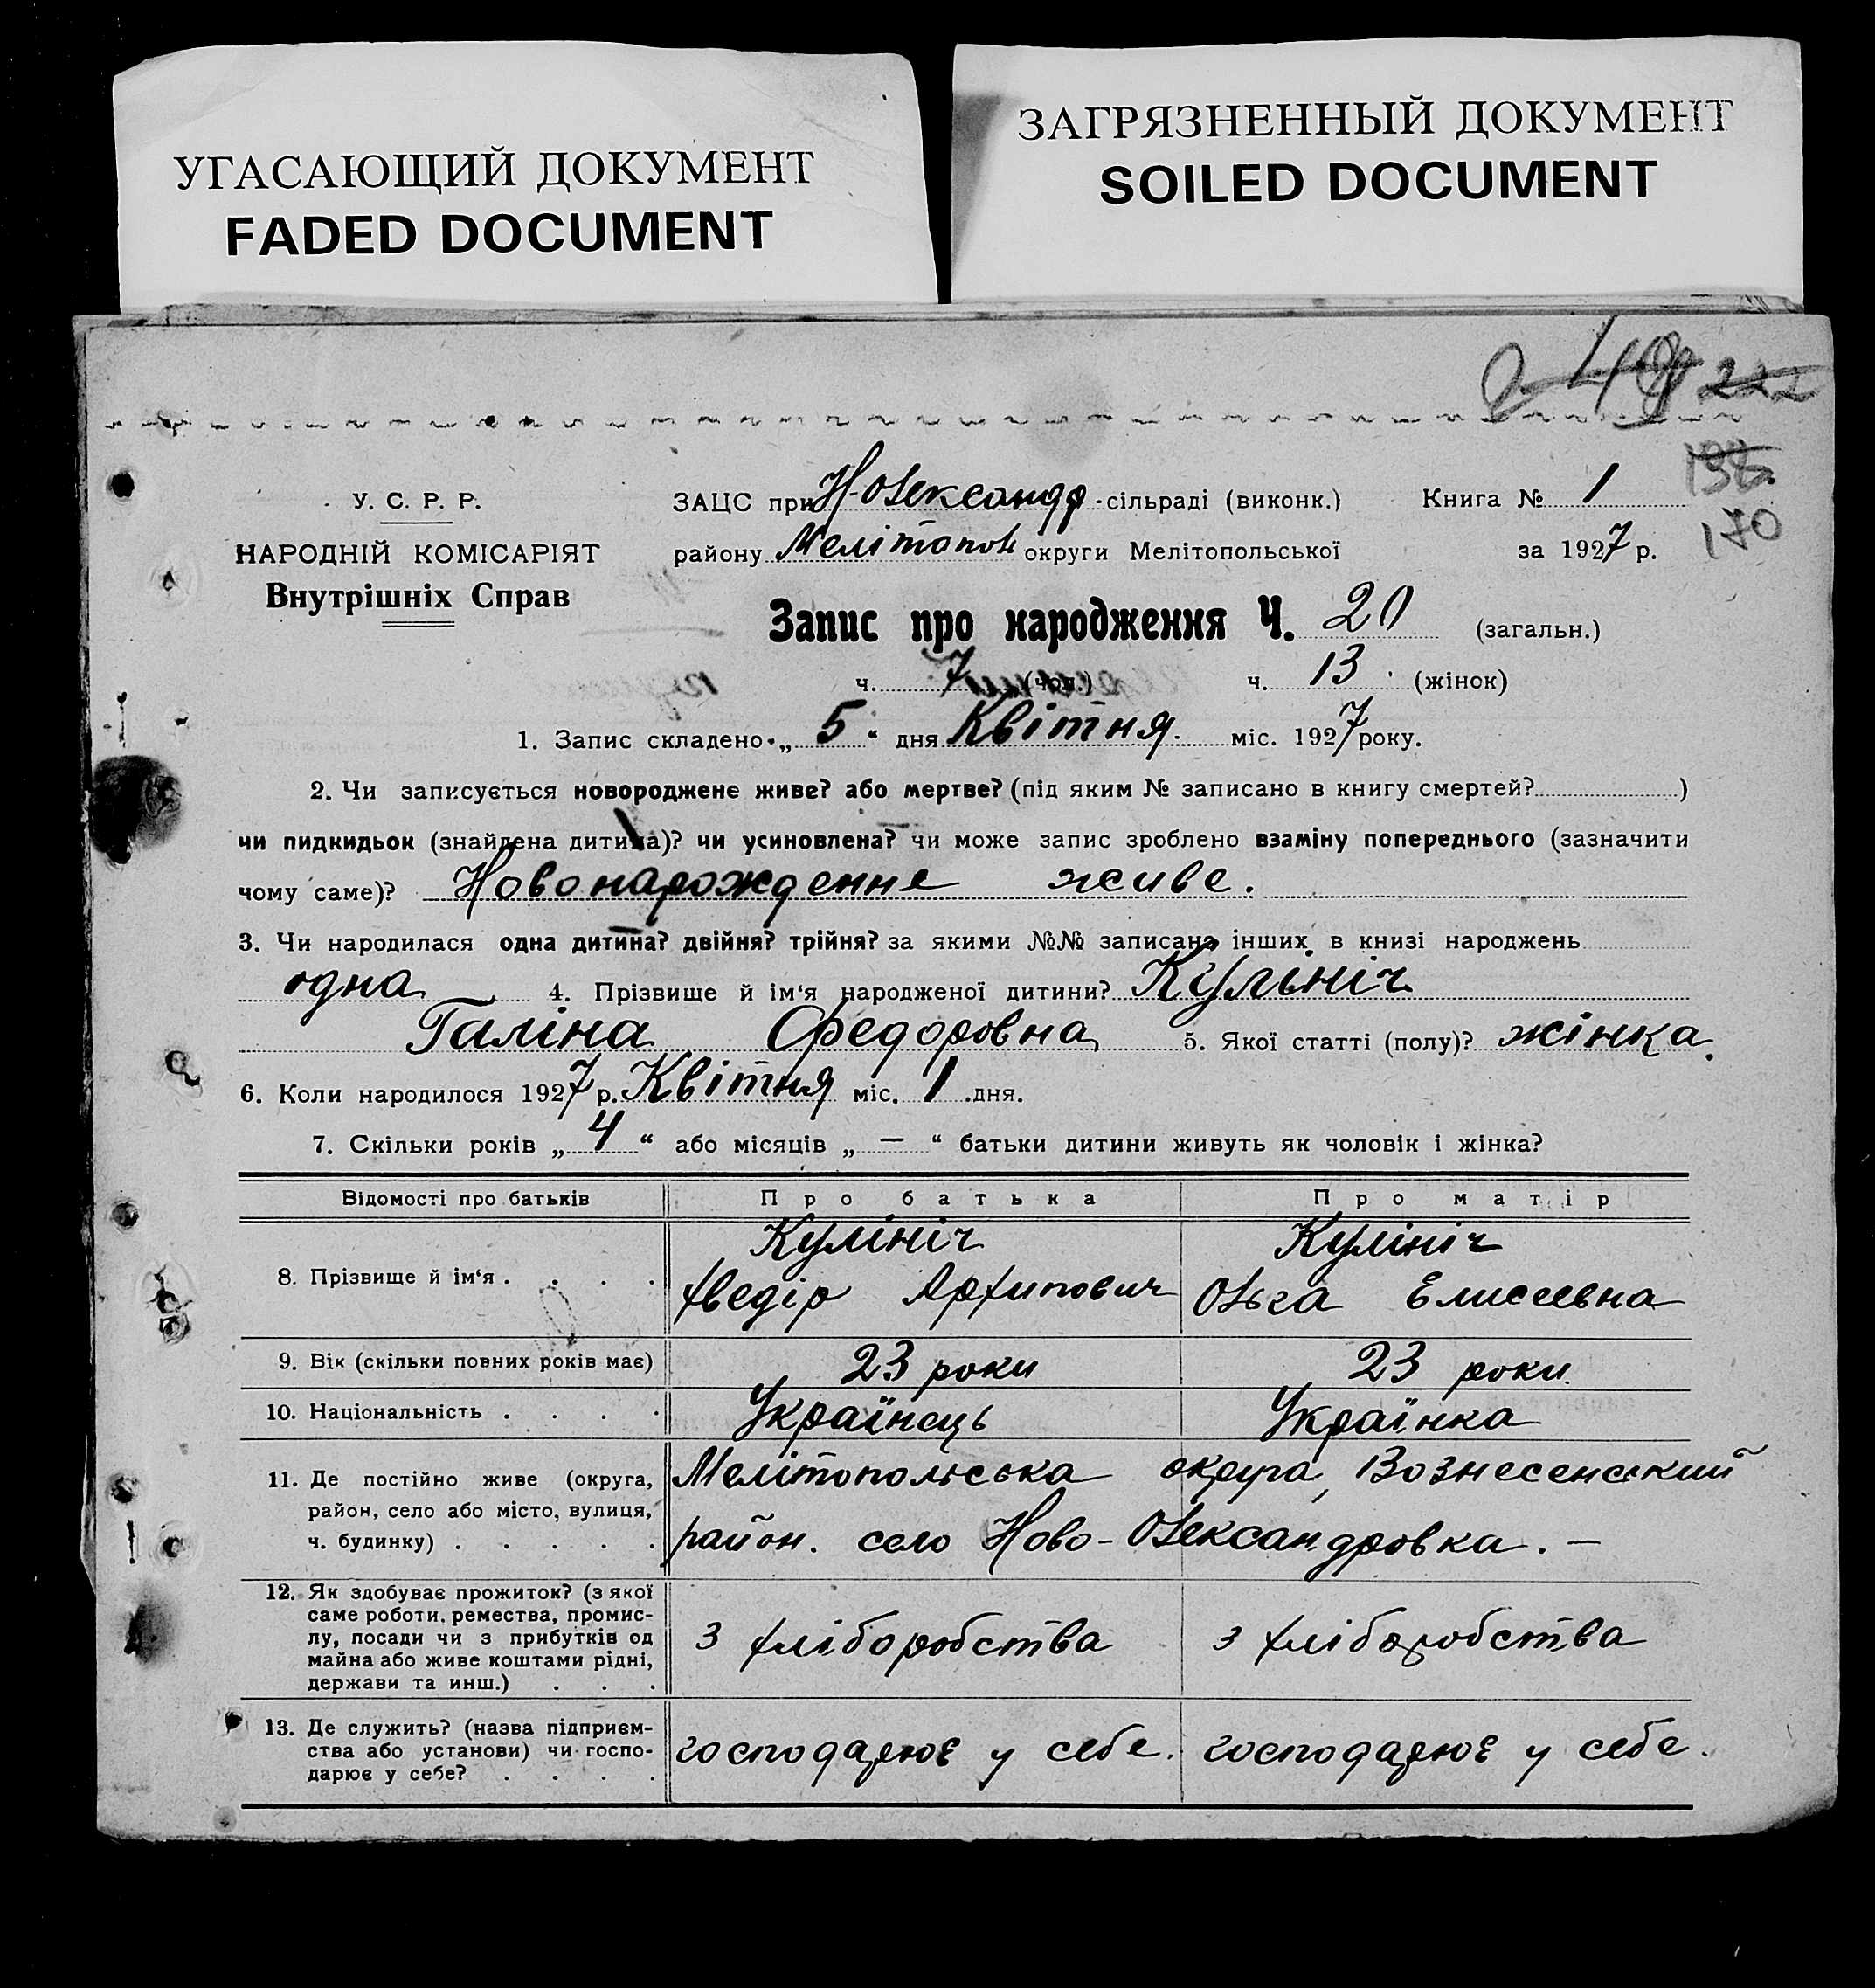 УГАСАЮЩИЙ ДОКУМЕНТ
FADED DOCUMENT
ЗАГРЯЗНЕННЫЙ ДОКУМЕНТ
SOILED DOCUMENT
222
138
170
У. С. Р. Р.
НАРОДНІЙ КОМІСАРІЯТ
Внутрішніх Справ
ЗАЦС при Н-Олександр-сільраді (виконк.) Книга № 1
району Мелітопол округи Мелітопольської за 1927 р.
Запис про народження Ч. 20 (загальн.)
ч. 7 (чол.) ч. 13 (жінок)
1. Запис складено „ 5 “ дня Квітня міс. 1927 року.
2. Чи записується новороджене живе? або мертве? (під яким № записано в книгу смертей? )
чи пидкидьок (знайдена дитина)? чи усиновлена? чи може запис зроблено взаміну попереднього (зазначити
чому саме)? Новонарожденне живе.
3. Чи народилася одна дитина? двійня? трійня? за якими №№ записано інших в книзі народжень
одна 4. Прізвище й ім‘я народженої дитини? Кулініч
Галіна Федоровна 5. Якої статті (полу)? жінка.
6. Коли народилося 1927 р. Квітня міс. 1 дня.
7. Скільки років „ 4 “ або місяців „ — “ батьки дитини живуть як чоловік і жінка?
Відомості про батьків Про батька Про матір
8. Прізвище й ім‘я . . . . Кулініч Кулініч
Хведір Архипович Ольга Елисеевна
9. Вік (скільки повних років має) 23 роки 23 роки
10. Національність . . . . Українець Українка
11. Де постійно живе (округа, район, село або місто, вулиця, ч. будинку) . . . . . Мелітопольська округа, Вознесенський
район. село Ново-Олександровка. —
12. Як здобуває прожиток? (з якої
саме роботи, ремества, промис-
лу, посади чи з прибутків од
майна або живе коштами рідні,
держави та инш.) . . .
з хліборобства з хліборобства
13. Де служить? (назва підприєм-
ства або установи) чи госпо-
дарює у себе? . . . .
господарює у себе. господарює у себе.